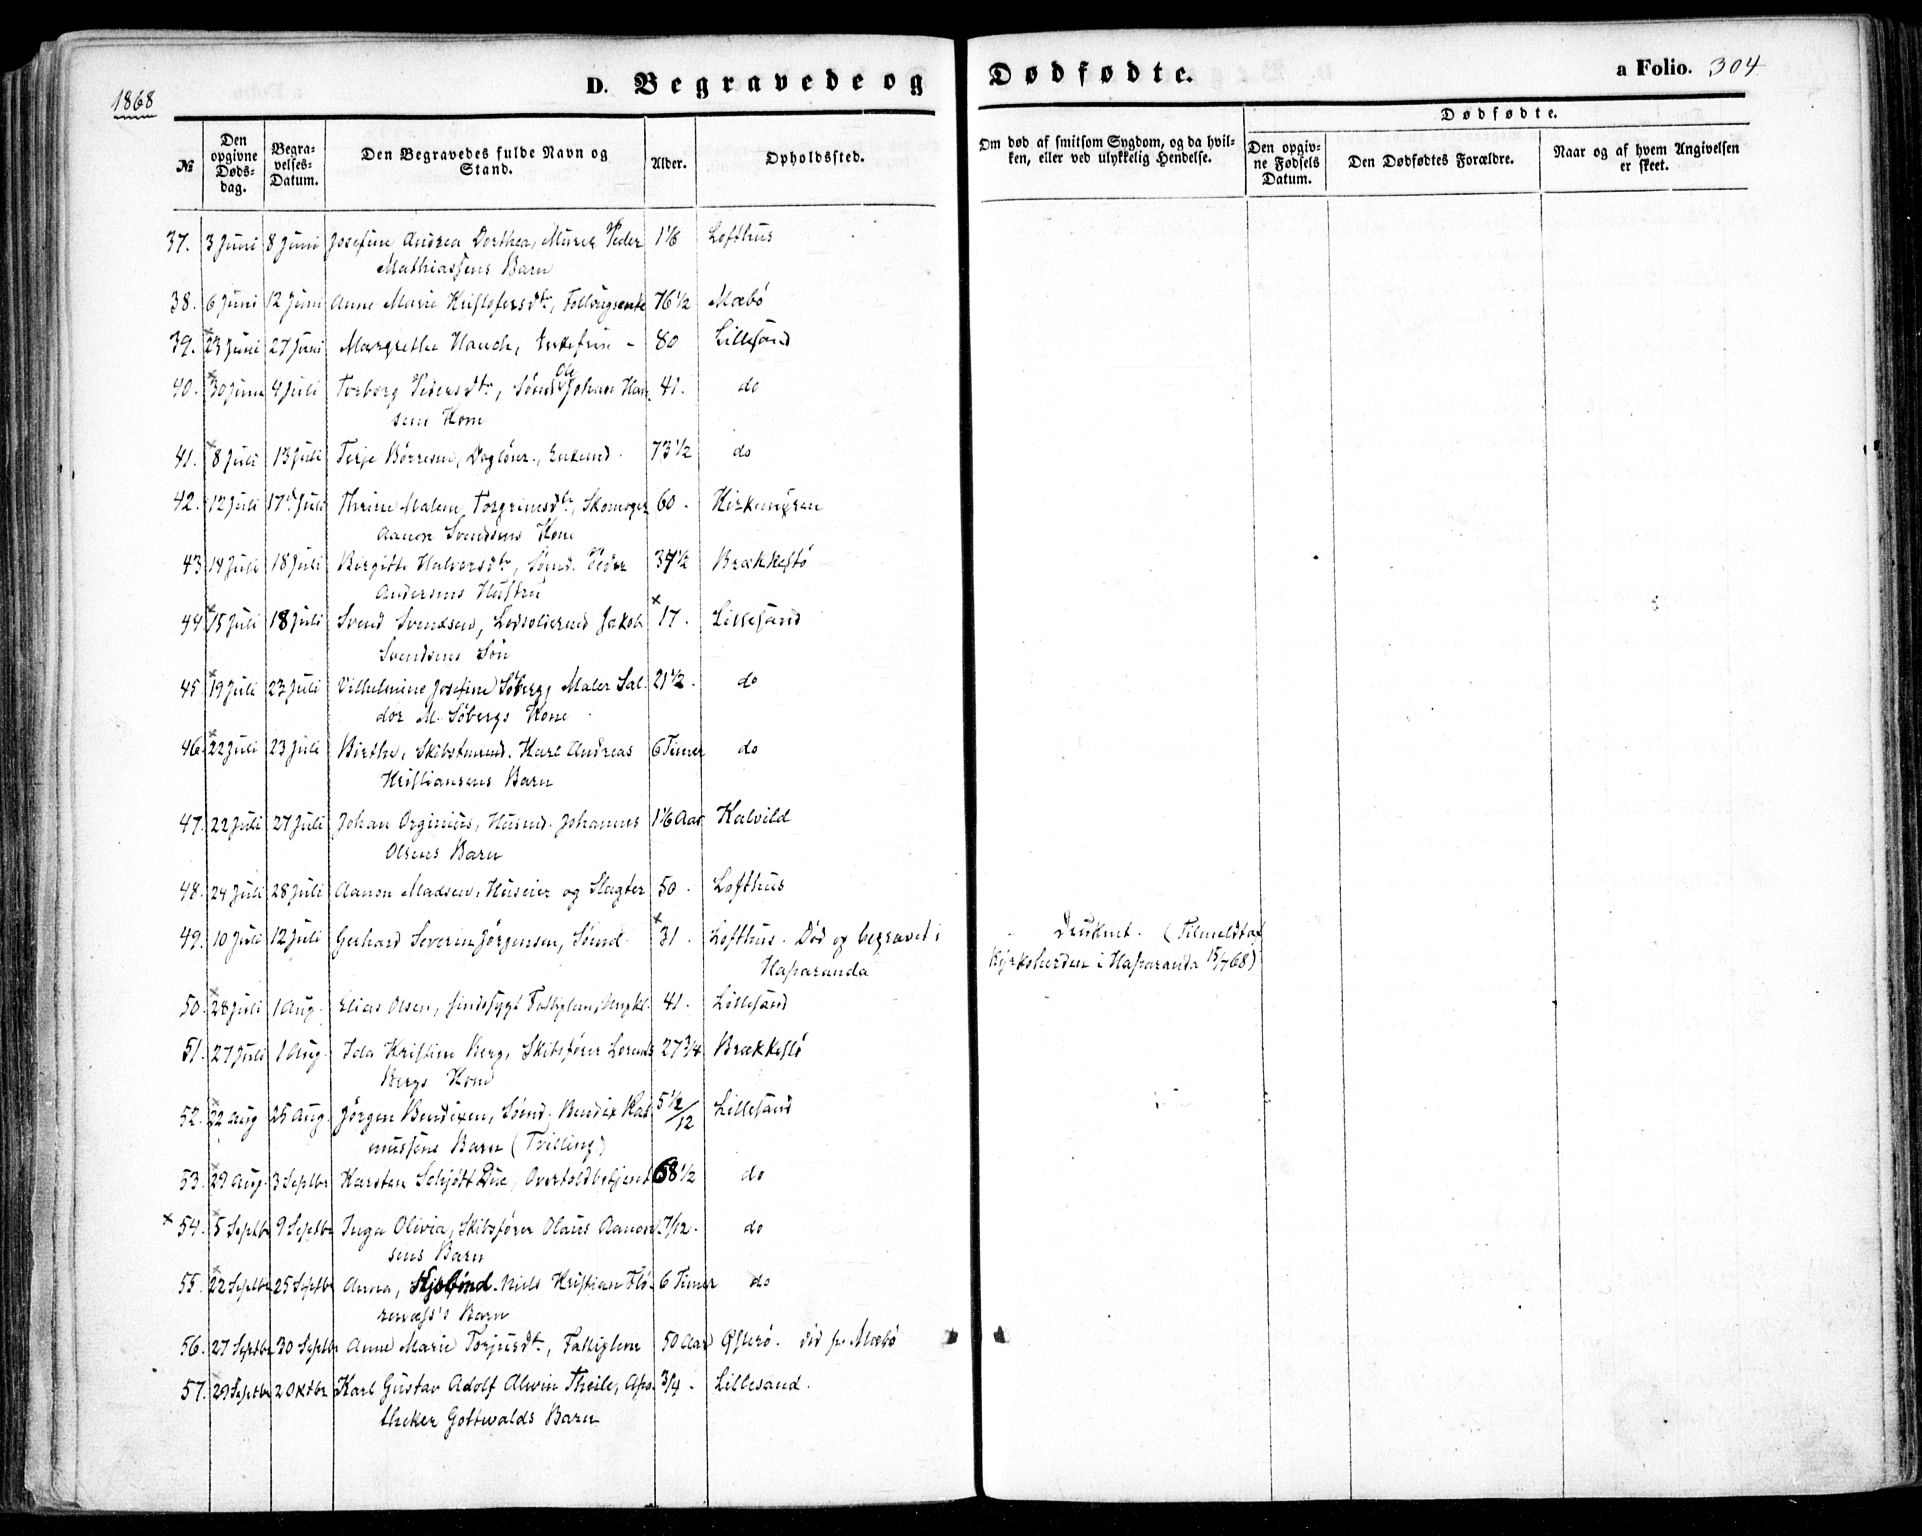 1868
D. Begravede og Dødfødte. a Folio. 304
№ Den opgivne Dødsdag. Begravelses-Datum. Den Begravedes fulde Navn og Stand. Alder. Opholdssted. Om død af smitsom Sygdom, og da hvilken, eller ved ulykkelig Hendelse. Dødfødte. Den opgivne Fødsels Datum. Den Dødfødtes Forældre. Naar og af hvem Angivelsen er skeet.
37. 3 Juni 8 Juni Josefine Andrea Dorthea, Murer Peder 1 1/6 Lofthus
Mathiassens Barn
38. 6 Juni 12 Juni Anne Marie Kristofersdtr, 76 1/2 Mæbø
39. 23 Juni 27 Juni Margrethe Hauch, Enkefrue - 80 Lillesand
40. 30 Juni 4 Juli Torborg Pedersdtr, Sømd Ole Johan Han 41. do
sens Kone
41. 8 Juli 13 Juli Terje Børresen, Dagløner, Enkemd. 73 1/2 do
42. 12 Juli 17 Juli Thrine Malene Torgrimsdtr, Skomager 60. Kirkemyren
Aanon Svendsens Kone
43 14 Juli 18 Juli Birgitte Halvorsdtr, Sømd. Peder 37 1/2 Brækkestø
Andersens Hustru
44 15 Juli 18 Juli Svend Svendsen, Lodsoldermd Jakob 17. Lillesand
Svendsens Søn
45 19 Juli 23 Juli Vilhelmine Josefine Søberg, Maler Sal- 21 1/2. do
dor M. Søbergs Kone
46. 22 Juli 23 Juli Birthe, Skibstmrmd. Karl Andreas 6 Timer do
Kristiansens Barn
47. 22 Juli 27 Juli Johan Orginius, Husmd. Johannes 1 1/6 Aar Kalvild
Olsens Barn
48. 24 Juli 28 Juli Aanon Madsen, Huseier og Slagter 50. Lofthus
49. 10 Juli 12 Juli Gerhard Severin Jørgensen, Sømd. 31. Lofthus. Død og begravet i Druknet. (Tilmeldt af
Haparanda Kyrkoherden i Haparanda 15/7 68)
50. 28 Juli 1 Aug. Elias Olsen, sindssygt Fattiglem, Ungkl. 41. Lillesand
51. 27 Juli 1 Aug. Ida Kristine Berg, Skibsfører Lorents 27 3/4 Brækkestø
Bergs Kone
52. 22 Aug 25 Aug. Jørgen Bendixen, Sømd. Bendix Ras 5 1/2/12 Lillesand
mussens Barn (Tvilling)
53. 29 Aug. 3 Septbr Karsten Schjøtt Due, Overtoldbetjent 68 1/2 do
54. 5 Septbr 9 Septbr Inga Olivia, Skibsfører Olaus Aanon 7/12. do
sens Barn
55. 22 Septbr 25 Septbr Anna, Niels Kristian Flø- 6 Timer do
renæss's Barn
56. 27 Septbr 30 Septbr Anne Marie Torjusdtr, Fattiglem 50 Aar Østerø. død på Mæbø
57. 29 Septbr 2 Oktbr Karl Gustav Adolf Alwin Theile, Apo- 3/4. Lillesand.
theker Gottwalds Barn